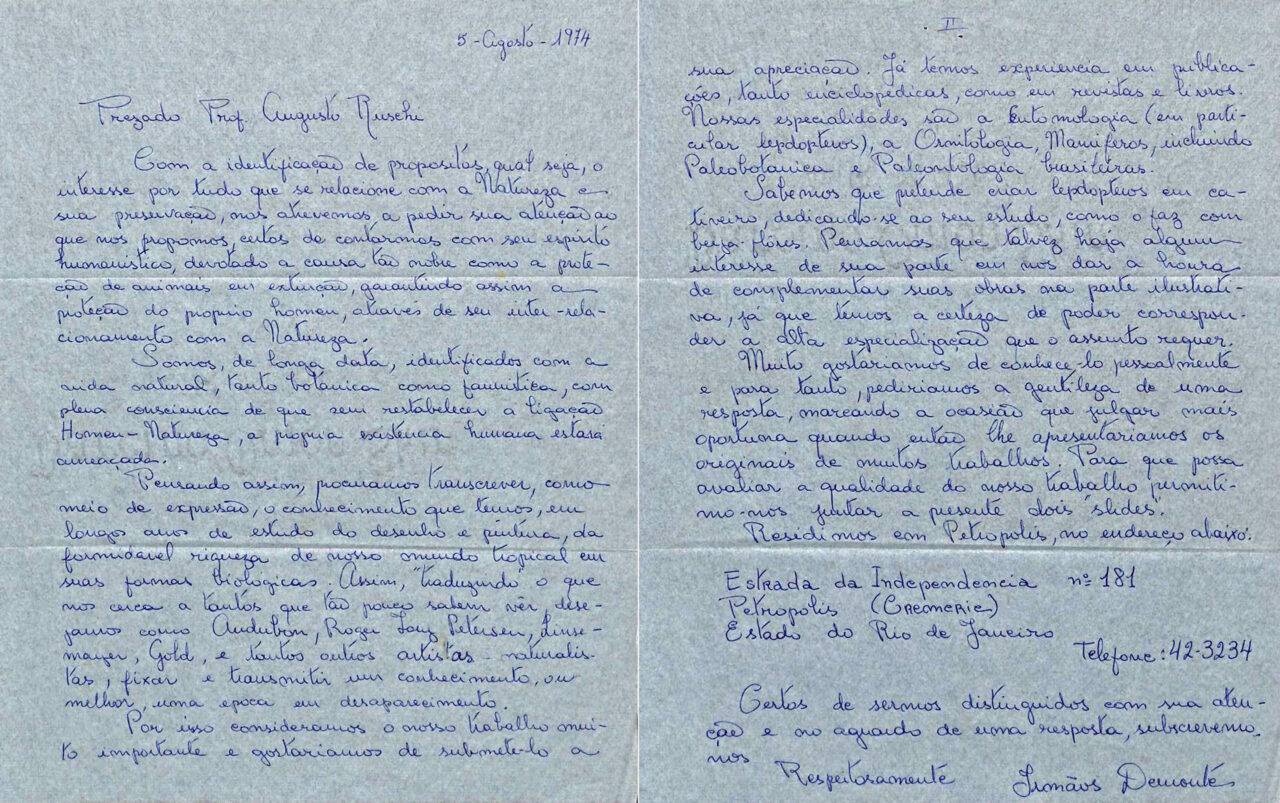 5-Agosto-1974
Prezado Prof Augusto Ruschi
Com a identificação de propositos, qual seja, o
interesse por tudo que se relacione com a Natureza e
sua preservação, nos atrevemos, a pedir sua atenção ao
que nos propomos, certos de contarmos com seu espírito
humanistico, devotado a causa tão nobre como a prote-
ção de animais em extinção, garantindo assim a
proteção do proprio homem, através de seu inter-rela-
cionamento com a Natureza.
Somos, de longa data, identificados com a
vida natural, tanto botânica como faunistica, com
plena consciencia de que sem restabelecer a ligação
Homem-Natureza, a propria existência humana estará
ameaçada.
Pensando assim, procuramos transcrever, como
meio de expressão, o conhecimento que temos, em
longos anos de estudo do desenho e pintura, da
formidável riqueza de nosso mundo tropical em
suas formas biologicas. Assim, "traduzindo" o que
nos cerca a tantos que tão pouco sabem vêr, dese-
jamos como Audubon, Roger Tory Petersen, Linse-
mayer, Gold, e tantos outros artistas-naturalis-
tas, fixar e transmitir um conhecimento, ou
melhor, uma epoca em desaparecimento.
Por isso consideramos o nosso trabalho mui-
to importante e gostariamos de submete-lo a
II
sua apreciação. Já temos experiencia em publica-
ções, tanto enciclopédicas, como em revistas e livros.
Nossas especialidades são a Entomologia (em parti-
cular lepdopteros), a Ornitologia, Mamiferos, incluindo
Paleobotanica e Paleontologia brasileiras.
Sabemos que pretende criar lepdopteros em ca-
tiveiro, dedicando-se ao seu estudo, como o faz com
beija-flôres. Pensamos que talvez haja algum
interesse de sua parte em nos dar a honra
de complementar suas obras na parte ilustrati-
va, já que temos a certeza de poder correspon-
der a alta especialização que o assunto requer.
Muito gostariamos de conhece-lo pessoalmente
e para tanto, pediriamos a gentileza de uma
resposta, marcando a ocasião que julgar mais
oportuna quando então lhe apresentariamos os
originais de muitos trabalhos. Para que possa
avaliar a qualidade do nosso trabalho permiti-
mo-nos juntar a presente dois "slides".
Residimos em Petropolis, no endereço abaixo:
Estrada da Independencia nº 181
Petropolis (Cremerie)
Estado do Rio de Janeiro
Telefone: 42-3234
Certos de sermos distinguidos com sua aten-
ção e no aguardo de uma resposta, subscrevemo-
nos
Respeitosamente Irmãos Demonte